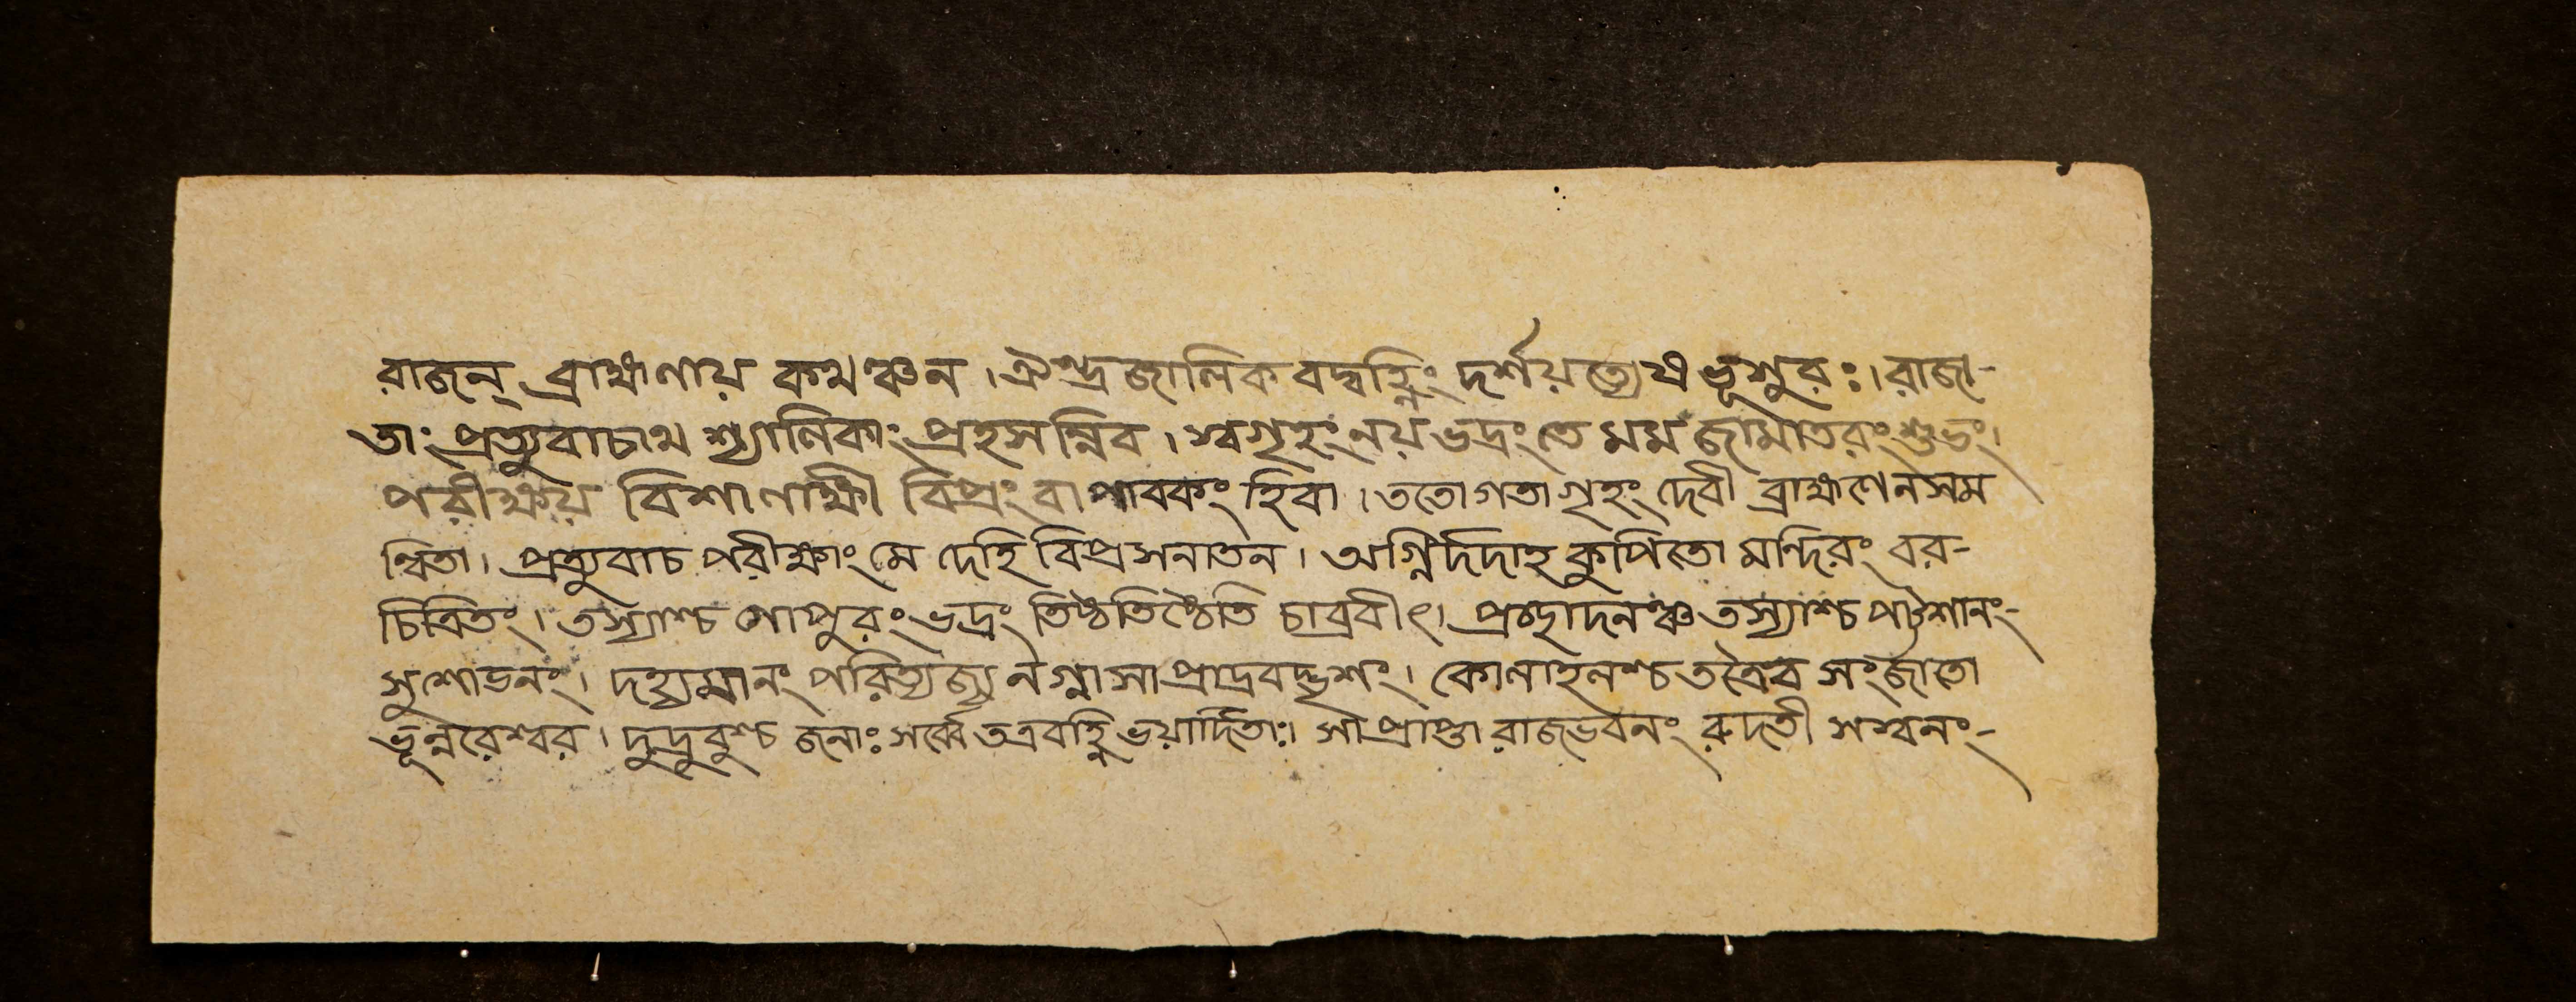 রাজন্ ব্রাহ্মণায় কথঞ্চন । ঐন্দ্রজালিক বদ্বহ্নিং দর্শয়ত্যেষ ভূশুরঃ । রাজা-
তাং প্রত্যুবাচাথ শ্যালিকাং প্রহসন্নিব । স্বগৃহং নয় ভদ্রং তে মম জামাতরং শুভং ।
পরীক্ষয় বিশালাক্ষী বিপ্রং বা পাবকং হিবা । ততো গতা গৃহং দেবী ব্রাহ্মণেন সম
ন্বিতা । প্রত্যুবাচ পরীক্ষাং মে দেহি বিপ্র সনাতন । অগ্নির্দদাহ কুপিতো মন্দিরং বর-
চিত্রিতং । তস্যাশ্চ গোপুরং ভদ্রং তিষ্ঠতিষ্ঠেতি চাব্রবীৎ । প্রচ্ছাদনঞ্চ তস্যাশ্চ পট্টশালং-
সুশোভনং । দহ্যমানং পরিত্যজ্য নগ্না সা প্রাদ্রবদ্ভৃশং । কোলাহলশ্চ তত্রৈব সংজাতো
ভূন্নরেশ্বর । দুদ্রুবুশ্চ জনাঃ সর্ব্বে তত্র বহ্নি ভয়ার্দিতাঃ । সা প্রাপ্তা রাজভবনং রুদতী সস্বনং-